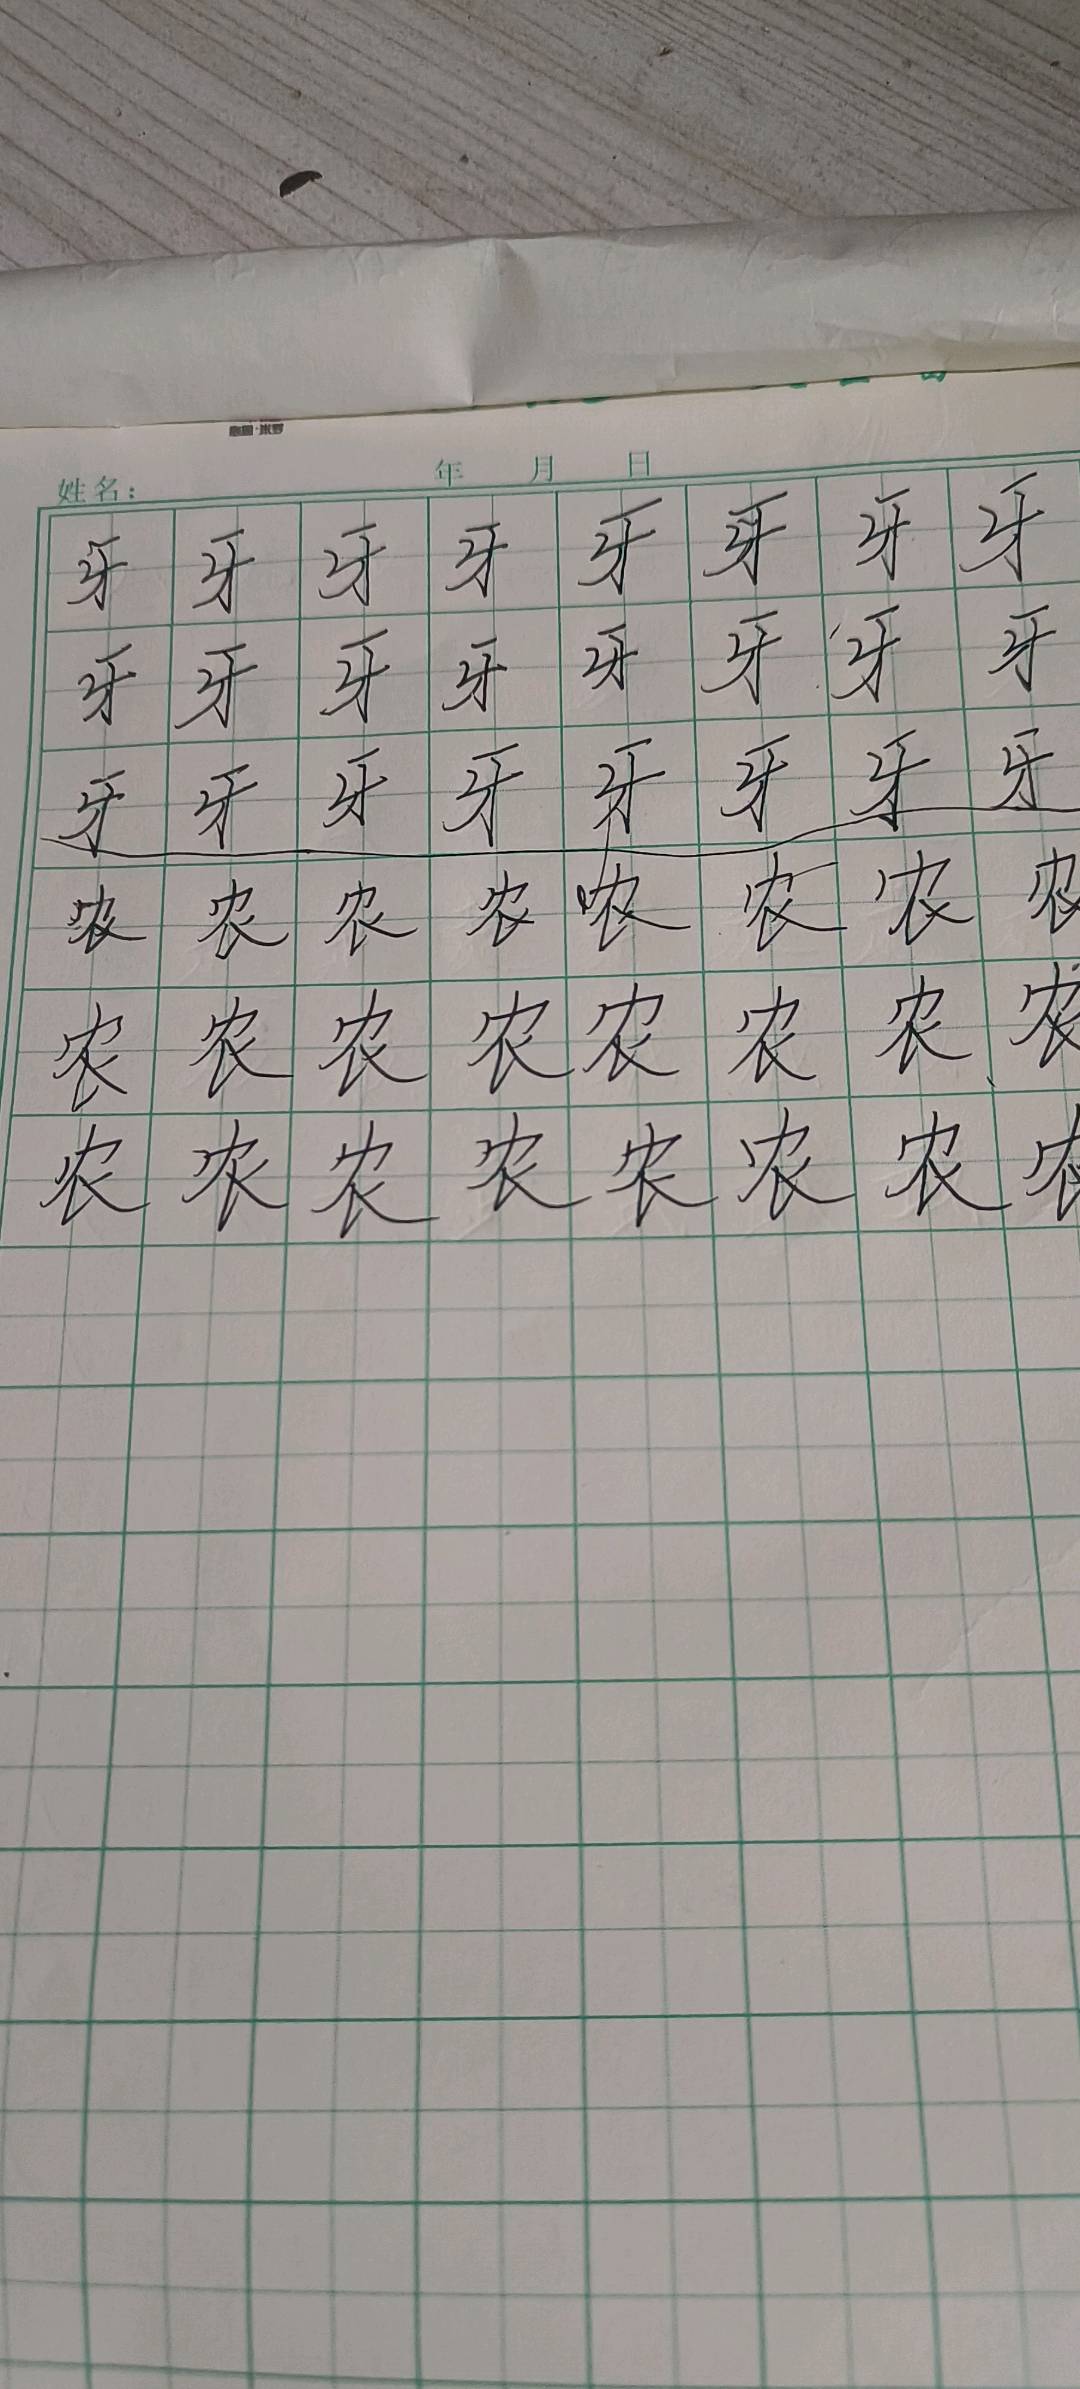 姓名： 年 月 日
牙 牙 牙 牙 牙 牙 牙 牙
牙 牙 牙 牙 牙 牙 牙 牙
牙 牙 牙 牙 牙 牙 牙 牙
农 农 农 农 农 农 农 农
农 农 农 农 农 农 农 农
农 农 农 农 农 农 农 农